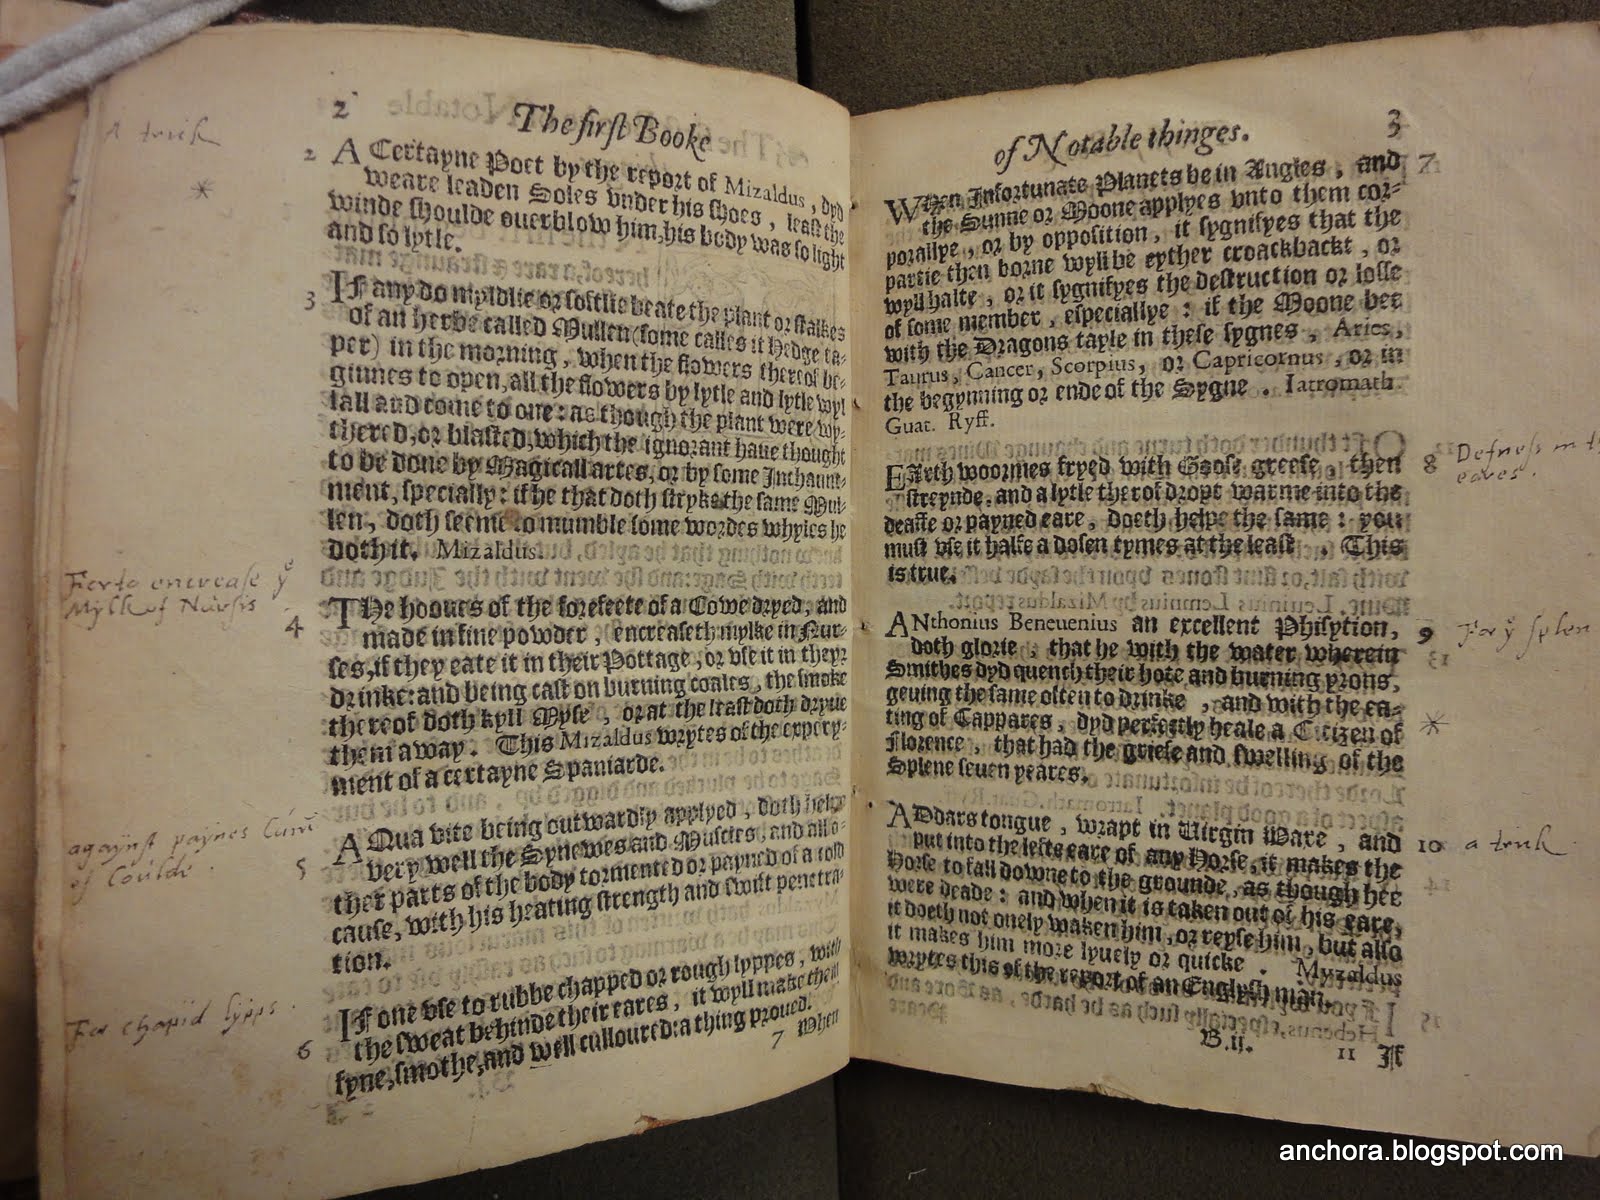 2
The first Booke
A trick
2 A Certayne Poet by the report of Mizaldus, dyd
weare leaden Soles vnder his shoes, least the
winde shoulde ouerblow him, his body was so light
and so lytle.
3 If any do myldlie or softlie beate the plant or stalkes
of an herbe called Mullen (some calles it Hedge ta-
per) in the morning, when the flowers therof be-
ginnes to open, all the flowers by lytle and lytle wyl
fall and come to one: as though the plant were wy-
thered, or blasted, which the ignorant haue thought
to be done by Magicall artes, or by some Inchaunt-
ment, specially: if he that doth stryke the same Mul-
len, doth seeme to mumble some wordes whyles he
doth it. Mizaldus.
For to encrease ye
Mylk of Nursis
4 The hooues of the forefeete of a Cowe dryed, and
made in fine powder, encreaseth mylke in Nur-
ses, if they eate it in their Pottage, or vse it in theyr
drinke: and being cast on burning coales, the smoke
thereof doth kyll Myse, or at the least doth dryue
them away. This Mizaldus wrytes of the experi-
ment of a certayne Spaniarde.
agaynst paynes
of Coulde.
5 AQua vite being outwardly applyed, doth helpe
very well the Synewes and Muscles, and all o-
ther parts of the body tormented or payned of a cold
cause, with his heating strength and swift penetra-
tion.
For chapid lypps.
6 If one vse to rubbe chapped or rough lyppes, with
the sweat behinde their eares, it wyll make them
fyne, smothe, and well culloured: a thing proued.
7 When
of Notable thinges.
3
When Infortunate Planets be in Angles, and 7
the Sunne or Moone applyes vnto them cor-
porallye, or by opposition, it sygnifyes that the
partie then borne wyll be eyther croackbackt, or
wyll halte, or it sygnifyes the destruction or losse
of some member, especiallye: if the Moone bee
with the Dragons tayle in these sygnes, Aries,
Taurus, Cancer, Scorpius, or Capricornus, or in
the begynning or ende of the Sygne. Iatromath.
Guat. Ryff.
EArth woormes fryed with Goose greese, then 8
streynde, and a lytle therof dropt warme into the
deaffe or payned eare, doeth helpe the same: you
must vse it halfe a dosen tymes at the least. This
is true.
Defness in
eares.
ANthonius Beneuenius an excellent Phisytion, 9
doth glorie, that he with the water wherein
Smithes dyd quench their hote and burning yrons,
geuing the same often to drinke, and with the ea-
ting of Cappares, dyd perfectly heale a Citizen of
Florence, that had the griefe and swelling of the
Splene seuen yeares.
For ye splen
ADdars tongue, wrapt in Uirgin Waxe, and 10
put into the lefte eare of any Horse, it makes the
Horse to fall downe to the grounde, as though hee
were deade: and when it is taken out of his eare,
it doeth not onely waken him, or reyse him, but also
it makes him more lyuely or quicke. Myzaldus
wrytes this of the report of an Englysh man.
a trick
B.ii.
11 If
anchora.blogspot.com